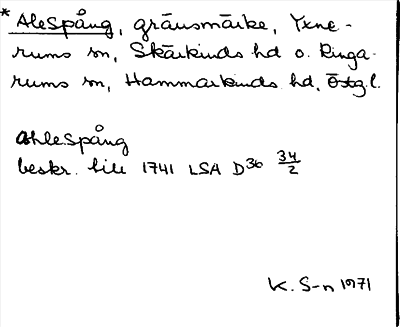 * Alespång, gränsmärke, Yxne-
rums sn, Skärkinds hd o. Ringa-
rums sn, Hammarkinds hd, Östg.l.
Ahlespång
beskr. till 1741 LSA D36 34/2
K. S-n 1971